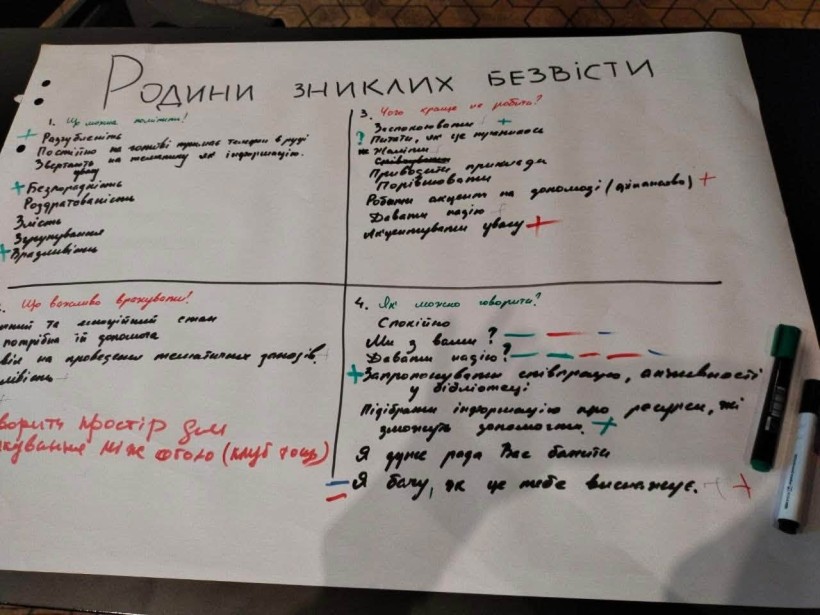 Родини зниклих безвісти
1. Що можна помітити?
Розгубленість
Постійно на готові тримає телефон в руці
Звертають увагу на телефонику як інформацію.
Безпорадність
Роздратованість
Злість
Вразливість
3. Чого краще не робити?
Заспокоювати
? Питати, як це трапилося
Жаліти
Співчувати
Приводити приклади
Порівнювати
Робити акцент на допомозі (фінансово)
Давати надію
Акцентувати увагу
Що важливо врахувати!
та емоційний стан
потрібна їй допомога
на проведення тематичних заходів.
простір для
між собою (клуб тощо)
4. Як можна говорити?
Спокійно
Ми з вами?
Давати надію?
Запропонувати співпрацю, активності
у бібліотеці
Підібрати інформацію про ресурси, які
зможуть допомогти.
Я дуже рада Вас бачити
Я бачу, як це тебе виснажує.